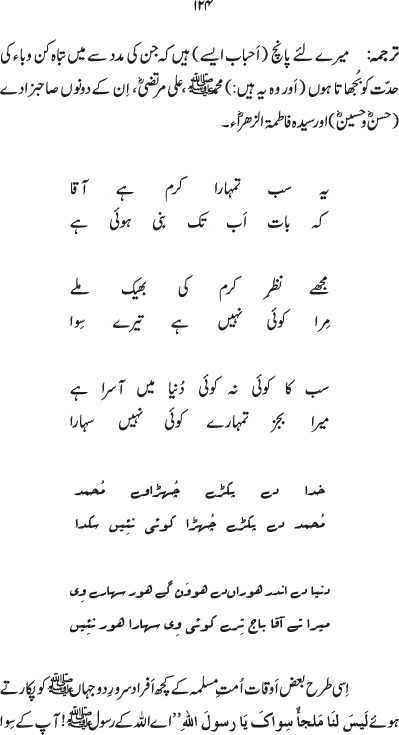 ۱۲۴
ترجمہ: میرے لئے پانچ (اَحباب ایسے) ہیں کہ جن کی مدد سے میں تباہ کن وباء کی
حدّت کو بُجھاتا ہوں (اَور وہ یہ ہیں:) محمد ﷺ، علی مرتضیٰؓ، اِن کے دونوں صاحبزادے
(حسنؓ و حسینؓ) اور سیدہ فاطمۃ الزھراءؓ۔
یہ سب تمہارا کرم ہے آقا
کہ بات اَب تک بنی ہوئی ہے
مجھے نظرِ کرم کی بھیک ملے
مرا کوئی نہیں ہے تیرے سِوا
سب کا کوئی نہ کوئی دُنیا میں آسرا ہے
میرا بجز تمہارے کوئی نہیں سہارا
خدا دے پکڑے چُھڑاوے مُحمد
مُحمد دے پکڑے چُھڑا کوئی نئیں سکدا
دنیا دے اندر ھوراں دے ھووَن گے ھور سہارے وِی
میرا تے آقا باجھ تِرے کوئی وِی سہارا ھور نئیں
اِسی طرح بعض اَوقات اُمتِ مسلمہ کے کچھ اَفراد سرورِ دوجہاں ﷺ کو پکارتے
ہوئے لَيسَ لَنَا مَلجأٌ سِواکَ يَا رسولَ اللهِ ”اے اللہ کے رسول ﷺ! آپ کے سِوا